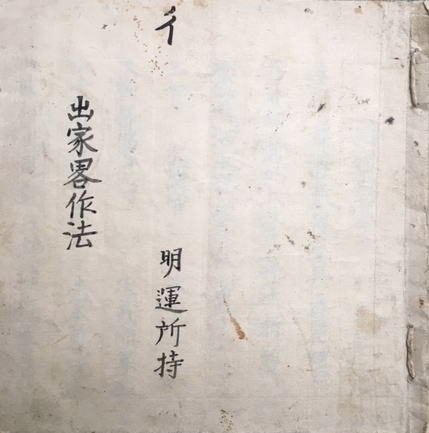 イ
明運所持
出家畧作法